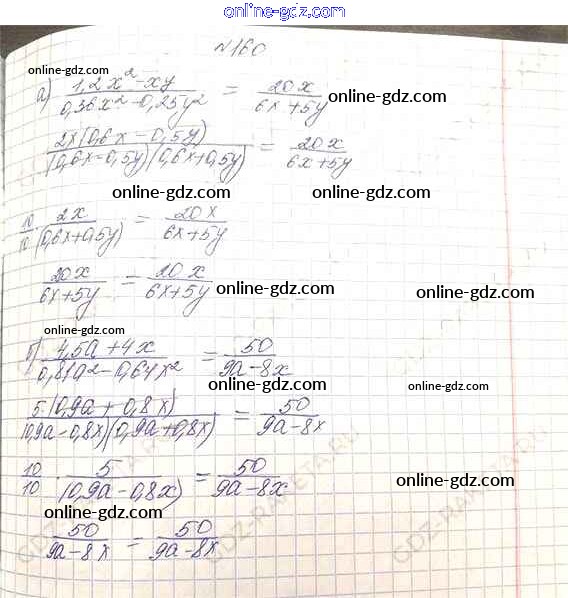 online-gdz.com
№160
online-gdz.com
а) (1,2x² - xy)/(0,36x² - 0,25y²) = 20x/(6x + 5y)
online-gdz.com
online-gdz.com
2x(0,6x - 0,5y)/((0,6x - 0,5y)(0,6x + 0,5y)) = 20x/(6x + 5y)
online-gdz.com
online-gdz.com
10/10 · 2x/(0,6x + 0,5y) = 20x/(6x + 5y)
online-gdz.com
20x/(6x + 5y) = 20x/(6x + 5y)
online-gdz.com
online-gdz.com
online-gdz.com
б) (4,5a + 4x)/(0,81a² - 0,64x²) = 50/(9a - 8x)
online-gdz.com
online-gdz.com
5(0,9a + 0,8x)/((0,9a - 0,8x)(0,9a + 0,8x)) = 50/(9a - 8x)
online-gdz.com
10/10 · 5/(0,9a - 0,8x) = 50/(9a - 8x)
online-gdz.com
online-gdz.com
50/(9a - 8x) = 50/(9a - 8x)
online-gdz.com
online-gdz.com
GDZ-RAKETA.RU